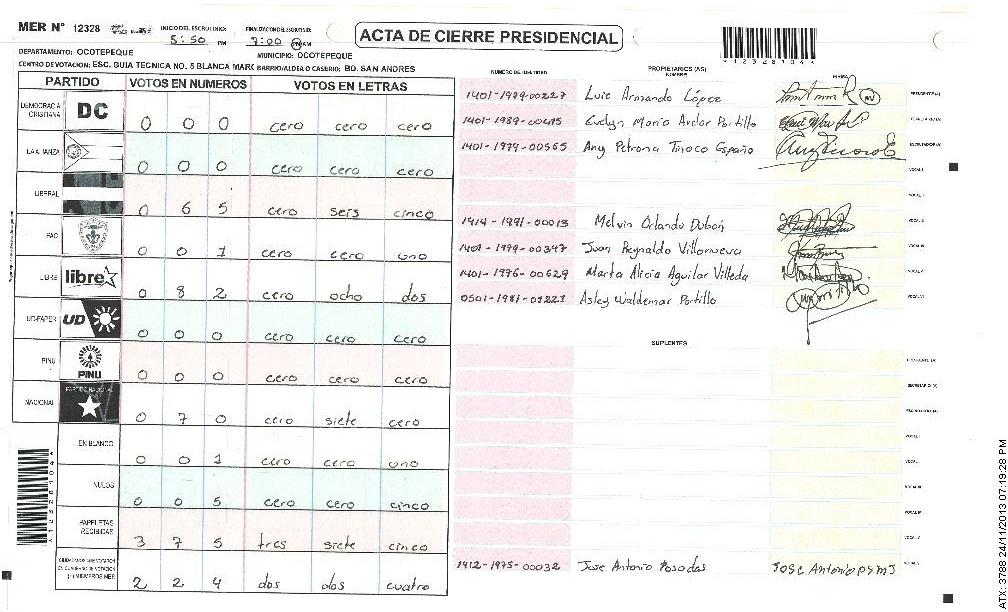 MER N° 12328 INICIO DEL ESCRUTINIO: FINALIZACION DEL ESCRUTINIO:
5:50 PM 7:00 PM AM
ACTA DE CIERRE PRESIDENCIAL
*12328104*
DEPARTAMENTO: OCOTEPEQUE MUNICIPIO: OCOTEPEQUE
CENTRO DE VOTACION: ESC. GUIA TECNICA NO. 5 BLANCA MARG BARRIO/ALDEA O CASERIO: BO. SAN ANDRES
PARTIDO VOTOS EN NUMEROS VOTOS EN LETRAS
DEMOCRACIA CRISTIANA DC 0 0 0 cero cero cero
LA ALIANZA 0 0 0 cero cero cero
LIBERAL 0 6 5 cero seis cinco
PAC 0 0 1 cero cero uno
LIBRE libre 0 8 2 cero ocho dos
UD-FAPER UD 0 0 0 cero cero cero
PINU PINU 0 0 0 cero cero cero
NACIONAL PARTIDO NACIONAL 0 7 0 cero siete cero
EN BLANCO 0 0 1 cero cero uno
NULOS 0 0 5 cero cero cinco
PAPELETAS RECIBIDAS 3 7 5 tres siete cinco
CIUDADANOS QUE VOTARON EN CUADERNO DE VOTACION (+) MIEMBROS MER 2 2 4 dos dos cuatro
NUMERO DE IDENTIDAD PROPIETARIOS (AS) NOMBRE FIRMA
1401-1979-00227 Luis Armando López PRESIDENTE (A)
1401-1989-00415 Evelyn Maria Ardon Portillo SECRETARIO (A)
1401-1979-00565 Any Petrona Tinoco España ESCRUTADOR (A)
VOCAL I
VOCAL II
1414-1991-00013 Melvin Orlando Dubón VOCAL III
1401-1979-00347 Juan Reynaldo Villanueva VOCAL IV
1401-1976-00629 Marta Alicia Aguilar Villeda VOCAL V
0501-1981-01221 Asley Waldemar Portillo VOCAL VI
SUPLENTES
PRESIDENTE (A)
SECRETARIO (A)
ESCRUTADOR (A)
VOCAL I
VOCAL II
VOCAL III
VOCAL IV
VOCAL V
1412-1975-00032 Jose Antonio Posadas Jose Antonio PSMJ
ATX: 3788 24/11/2013 07:19:28 PM